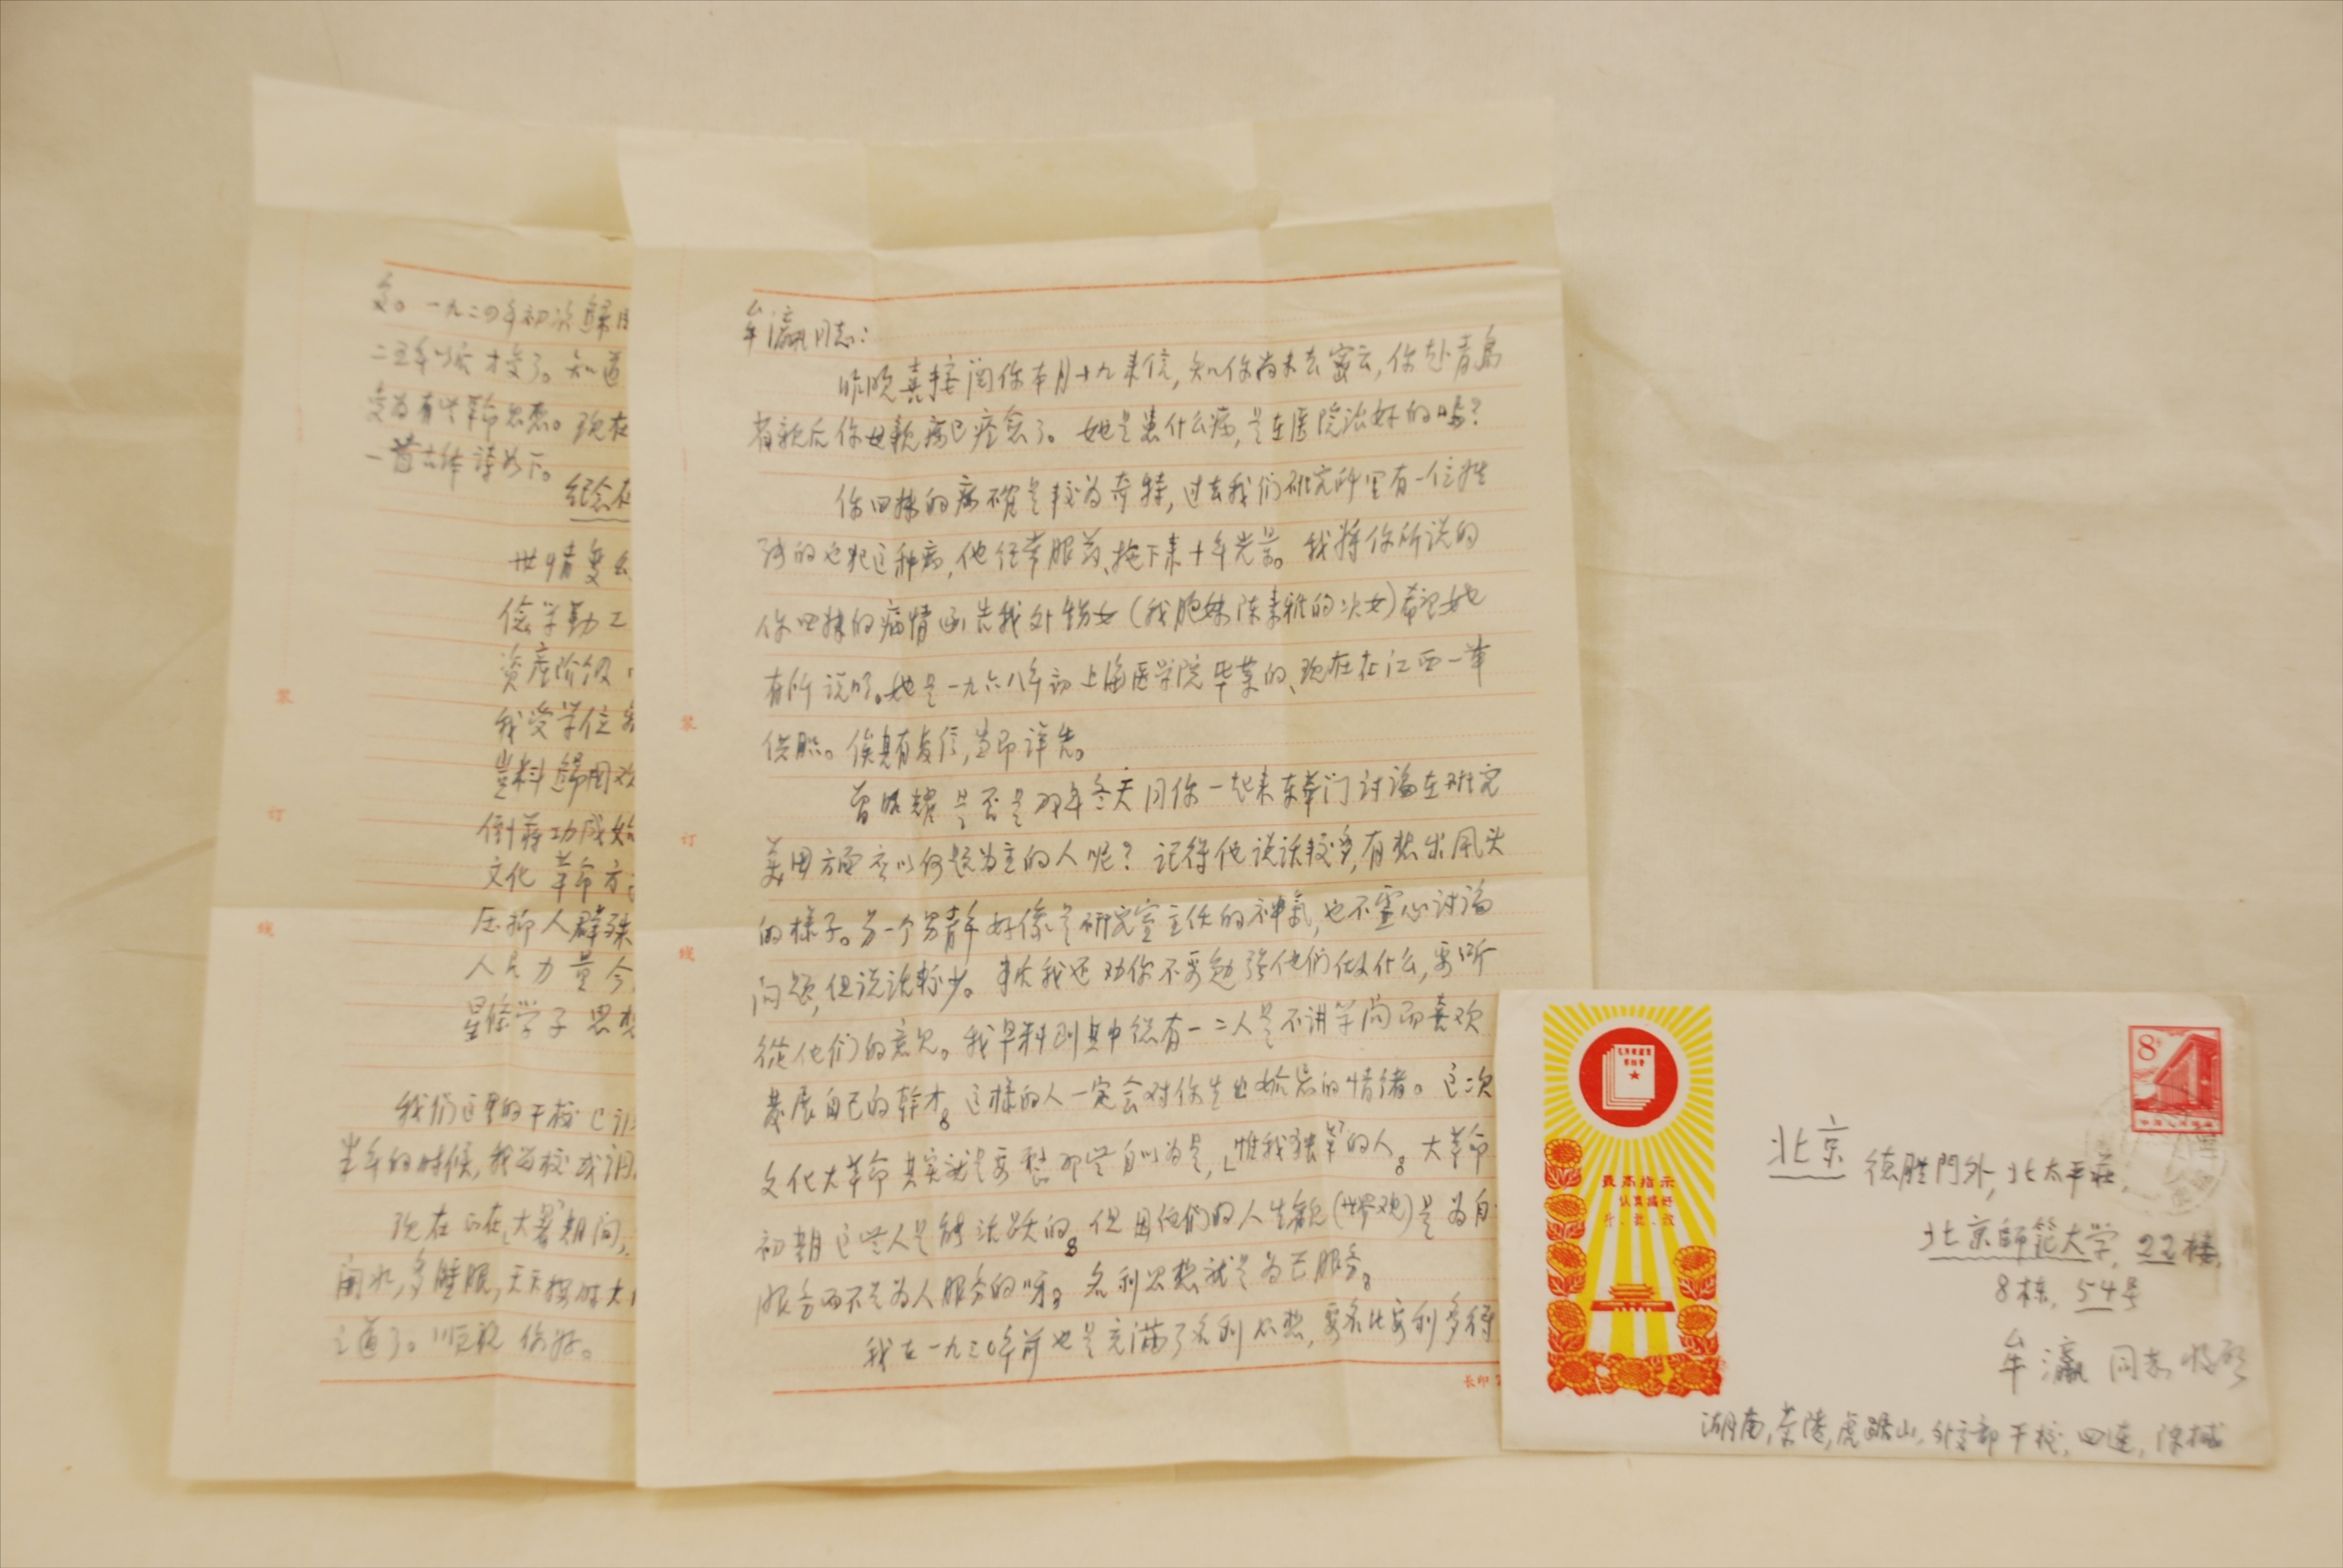 牟瀛同志:
昨晚喜接阅你本月十九来信,知你尚未去密云,你赴青岛
省亲后你母亲病已痊愈了。她是患什么病,是在医院治好的吗?
你四妹的病确是较为奇特,过去我们研究所里有一位姓
的也犯这种病,他经常服药、拖下来十年光景。我将你所说的
你四妹的病情函告我外甥女(我胞妹陈素雅的次女)希望她
有所说明。她是一九六八年初上海医学院毕业的、现在在江西一带
供职。俟其有复信,当即详告。
曾昭耀是否是那年冬天同你一起来东华门讨论在研究
美国方面应以何题为主的人呢?记得他说话较多,有想出风头
的样子。另一个男青年好像是研究室主任的神气,也不虚心讨论
问题,但说话较少。事后我还劝你不要勉强他们做什么,要听
从他们的意见。我早料到其中总有一二人是不讲学问而喜欢
发展自己的幹才。这样的人一定会对你生出妒忌的情绪。这次
文化大革命其实就是要整那些自以为是,「惟我独革」的人。大革命
初期这些人是能活跃的。但因他们的人生观(世界观)是为自
服务而不是为人服务的呀。名利思想就是为己服务。
我在一九三〇年前也是充满了名利思想,要名比要利多得
装
订
线
长印
变。一九二四年初次归国
二五年以后才变了。知道
变为有些革命思想。现在
一首古体诗如下。
纪念在
世情变幻
俭学勤工
资产阶级
我受学位
岂料归国
倒蒋功成始
文化革命方
压抑人群殊
人民力量今
星条学子思想
我们这里的干校已
半年的时候,我为校
现在正在「大暑」期间,
开水,多睡眠,天天按时大
之道了。顺祝 你好。
装
订
线
最高指示
认真搞好
斗、批、改
8分
北京 德胜門外,北太平莊,
北京師範大学,22楼,
8栋,54号
牟瀛 同志 收启
湖南,茶陵,虎踞山,外交部干校,四连,陈樾